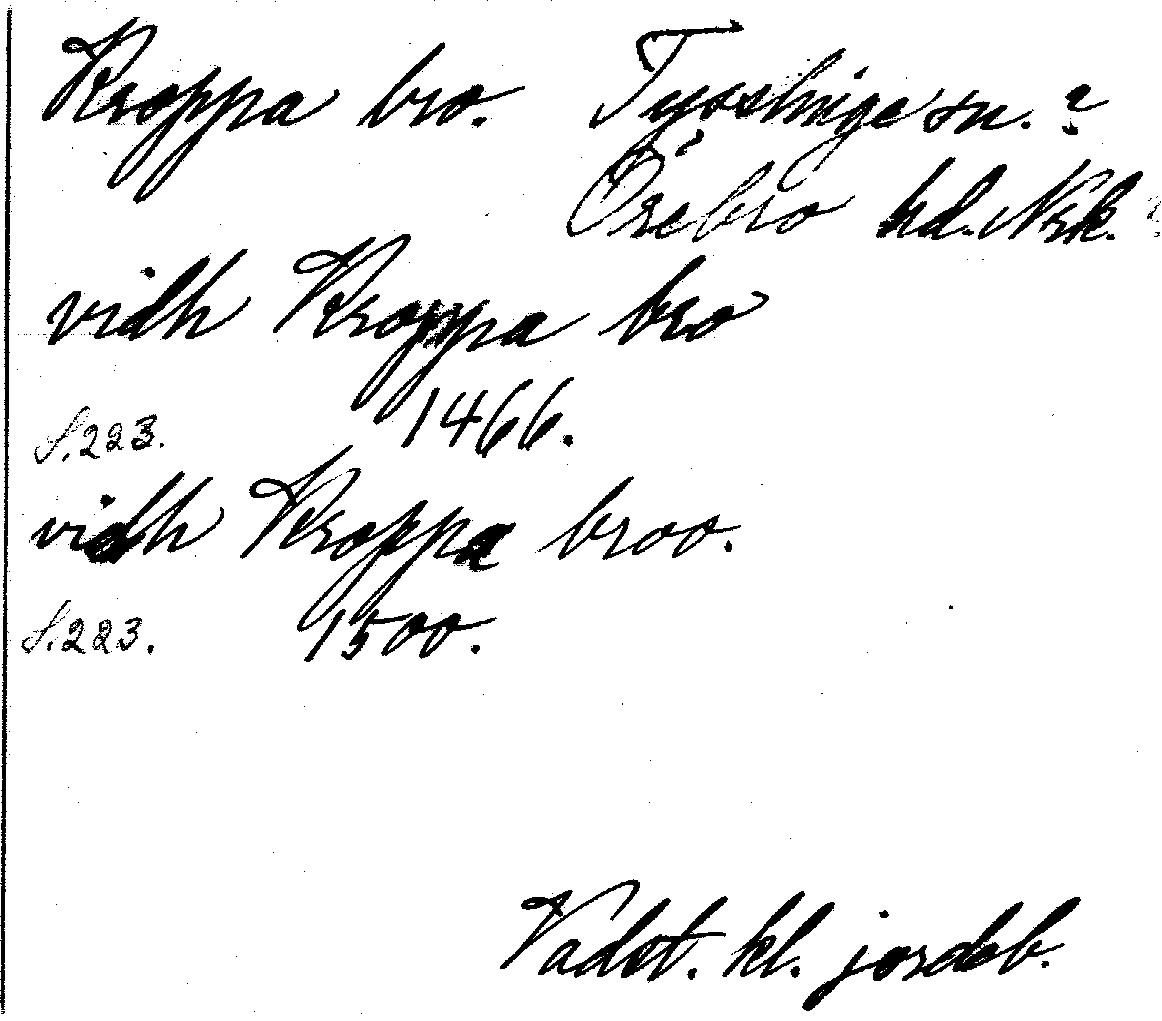 Kroppa bro. Tysslinge sn. ?
Örebro hd. Nrk. ?
vidh Kroppa bro
S. 223. 1466.
vidh Kroppa broo.
S. 223. 1500.
Vadst. kl. jordeb.